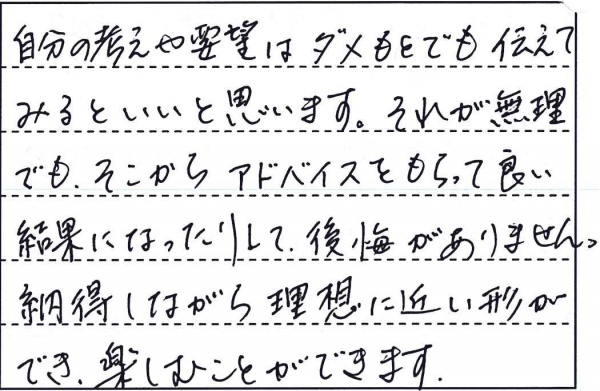 自分の考えや要望はダメもとでも伝えて
みるといいと思います。それが無理
でも、そこからアドバイスをもらって良い
結果になったりして、後悔がありません。
納得しながら理想に近い形が
でき、楽しむことができます.